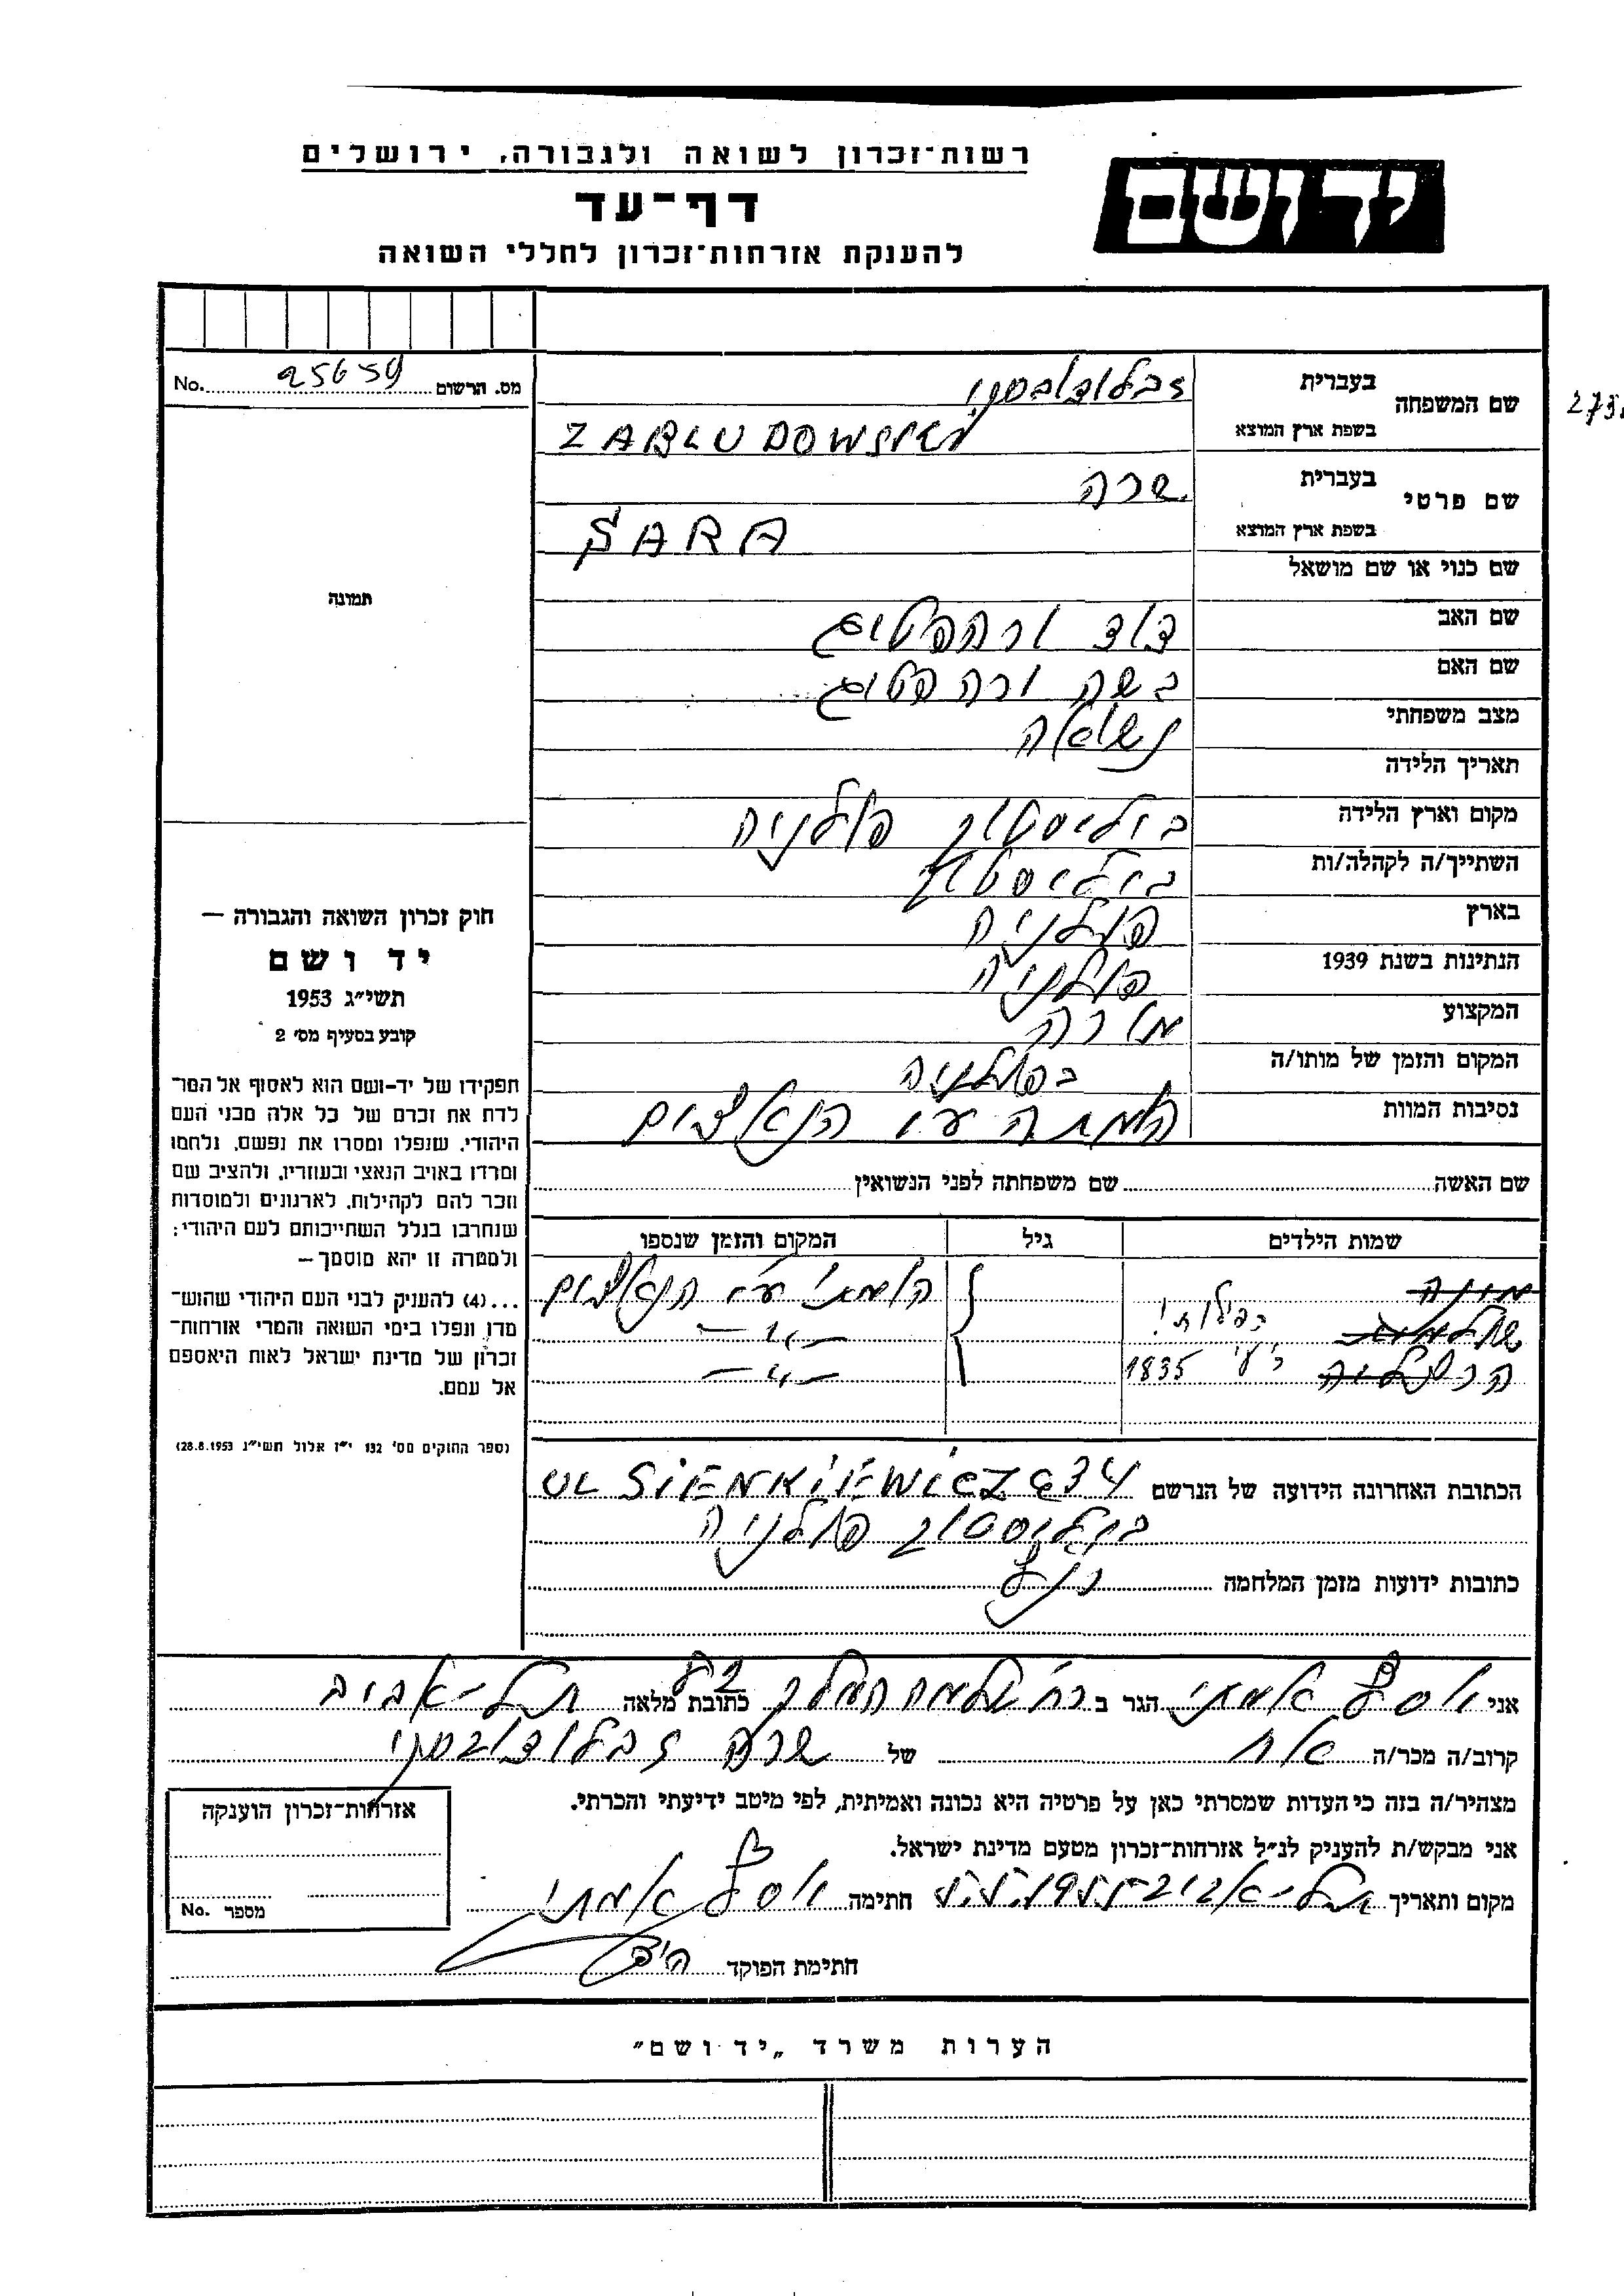 רשות־זכרון לשואה ולגבורה, ירושלים
יד ושם
דף־עד
להענקת אזרחות־זכרון לחללי השואה
מס. הרשום 25659 No.
שם המשפחה
בעברית זבלודובסקי
בשפת ארץ המוצא ZABLUDOWSKI
שם פרטי
בעברית שרה
בשפת ארץ המוצא SARA
שם כנוי או שם מושאל
שם האב דוד ורהפטיג
שם האם בשה ורהפטיג
מצב משפחתי נשואה
תאריך הלידה
מקום וארץ הלידה ביליסטוק פולניה
השתייך/ה לקהלה/ות ביליסטוק
בארץ פולניה
הנתינות בשנת 1939 פולניה
המקצוע מורה
המקום והזמן של מותו/ה בפולניה
נסיבות המוות הומתה ע״י הנאצים
שם האשה שם משפחתה לפני הנשואין
שמות הילדים גיל המקום והזמן שנספו
מונה הומתו ע״י הנאצים
שולמית כפילות! -״-
הרצליה 1835 -״-
הכתובת האחרונה הידועה של הנרשם UL SIENKIEWICZA 34
ביליסטוק פולניה
כתובות ידועות מזמן המלחמה כנ״ל
אני יוסף אמתי הגר ב רח׳ שלמה המלך כתובת מלאה תל־אביב
קרוב/ה מכר/ה אח של שרה זבלודובסקי
מצהיר/ה בזה כי העדות שמסרתי כאן על פרטיה היא נכונה ואמיתית, לפי מיטב ידיעתי והכרתי.
אני מבקש/ת להעניק לנ״ל אזרחות־זכרון מטעם מדינת ישראל.
מקום ותאריך תל־אביב חתימה יוסף אמתי
חתימת הפוקד
תמונה
חוק זכרון השואה והגבורה —
יד ושם
תשי״ג 1953
קובע בסעיף מס׳ 2
תפקידו של יד-ושם הוא לאסוף אל המו־
לדת את זכרם של כל אלה מבני העם
היהודי, שנפלו ומסרו את נפשם, נלחמו
ומרדו באויב הנאצי ובעוזריו, ולהציב שם
וזכר להם לקהילות, לארגונים ולמוסדות
שנחרבו בגלל השתייכותם לעם היהודי;
ולמטרה זו יהא מוסמך—
...(4) להעניק לבני העם היהודי שהוש־
מדו ונפלו בימי השואה והמרי אזרחות־
זכרון של מדינת ישראל לאות היאספם
אל עמם.
(ספר החוקים מס׳ 132 י״ז אלול תשי״ג 28.8.1953)
אזרחות־זכרון הוענקה
מספר No.
הערות משרד „יד ושם״